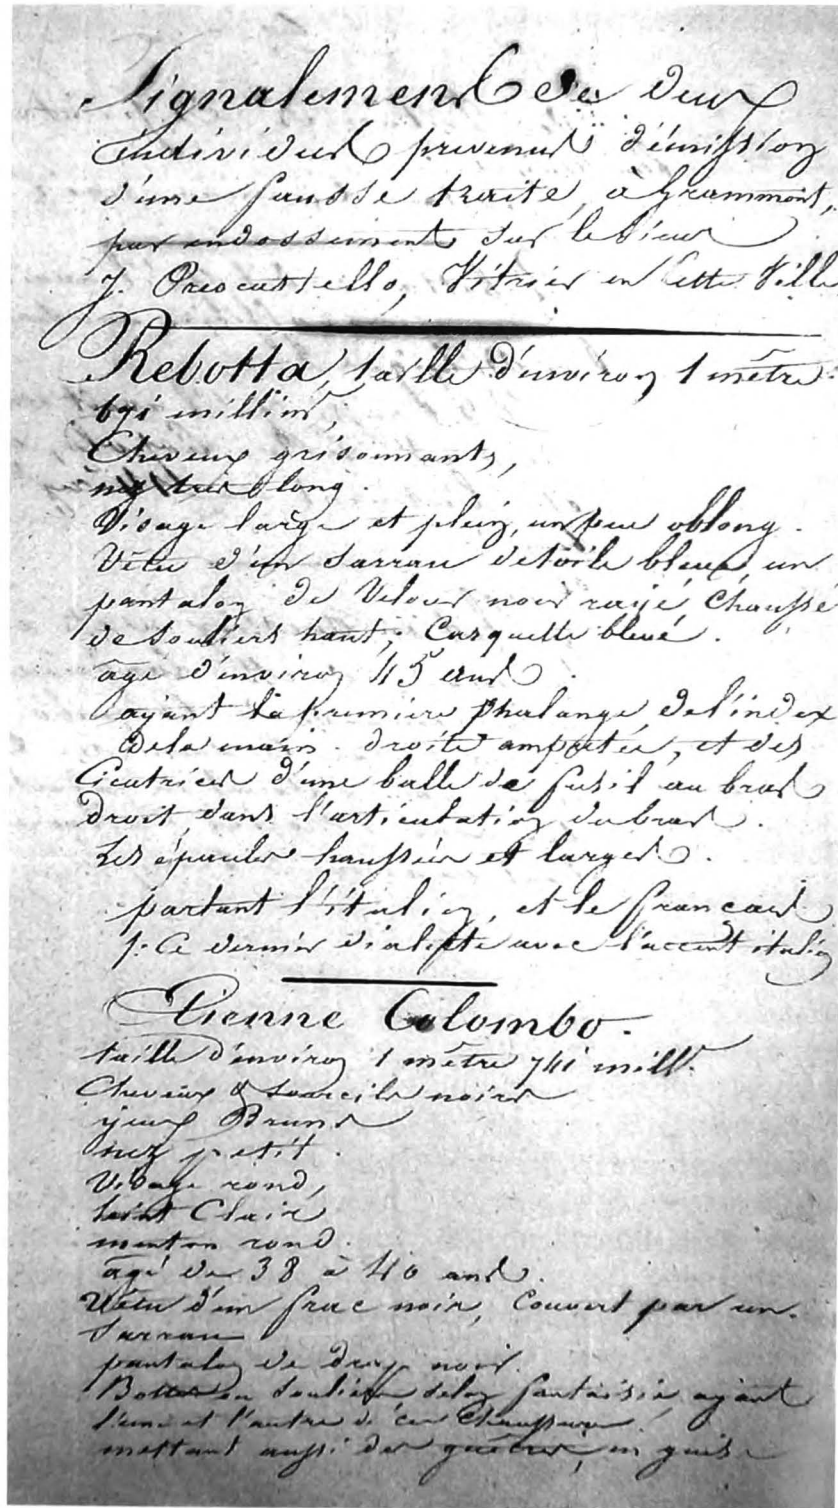 Signalement de deux
individus prevenus d'émission
d'une fausse traite, à Grammont,
par endossement sur le sieur
J. Preocastello, Vitrier en Cette Ville
Rebotta, taille d'environ 1 mètre
691 millim,
Cheveux grisonnants,
nez très long.
Visage large et plein, un peu oblong.
Vêtu d'un sarrau de toile bleue, un
pantalon de Velour noir rayé, Chaussé
de souliers haut, Casquette bleué.
âge d'environ 45 ans.
ayant la premiere phalange de l'index
de la main droite amputée, et des
Cicatrices d'une balle de fusil au bras
droit dans l'articulation du bras.
Les épaules haussées et larges.
parlant l'italien, et le français
ce dernier dialecte avec l'accent italien
Etienne Colombo.
taille d'environ 1 mètre 741 mill.
Cheveux & sourcils noirs
yeux Bruns
nez petit.
Visage rond,
teint Clair
menton rond.
âgé de 38 à 40 ans.
Vêtu d'un frac noir, Couvert par un
sarrau
pantalon de drap noir.
Bottes ou souliers selon fantaisie, ayant
l'une et l'autre de ces Chaussures.
mettant aussi des guêtres, en guise